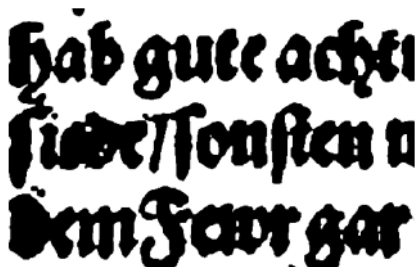 hab gute acht
siede/sonsten
dem Fewr gar